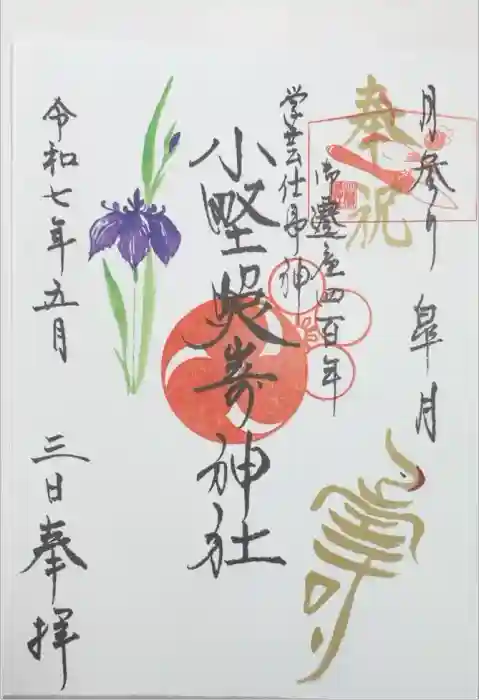 月参り 皐月
奉祝
御遷座四百年
学芸仕事神
小野照崎神社
令和七年五月
三日奉拝
寿